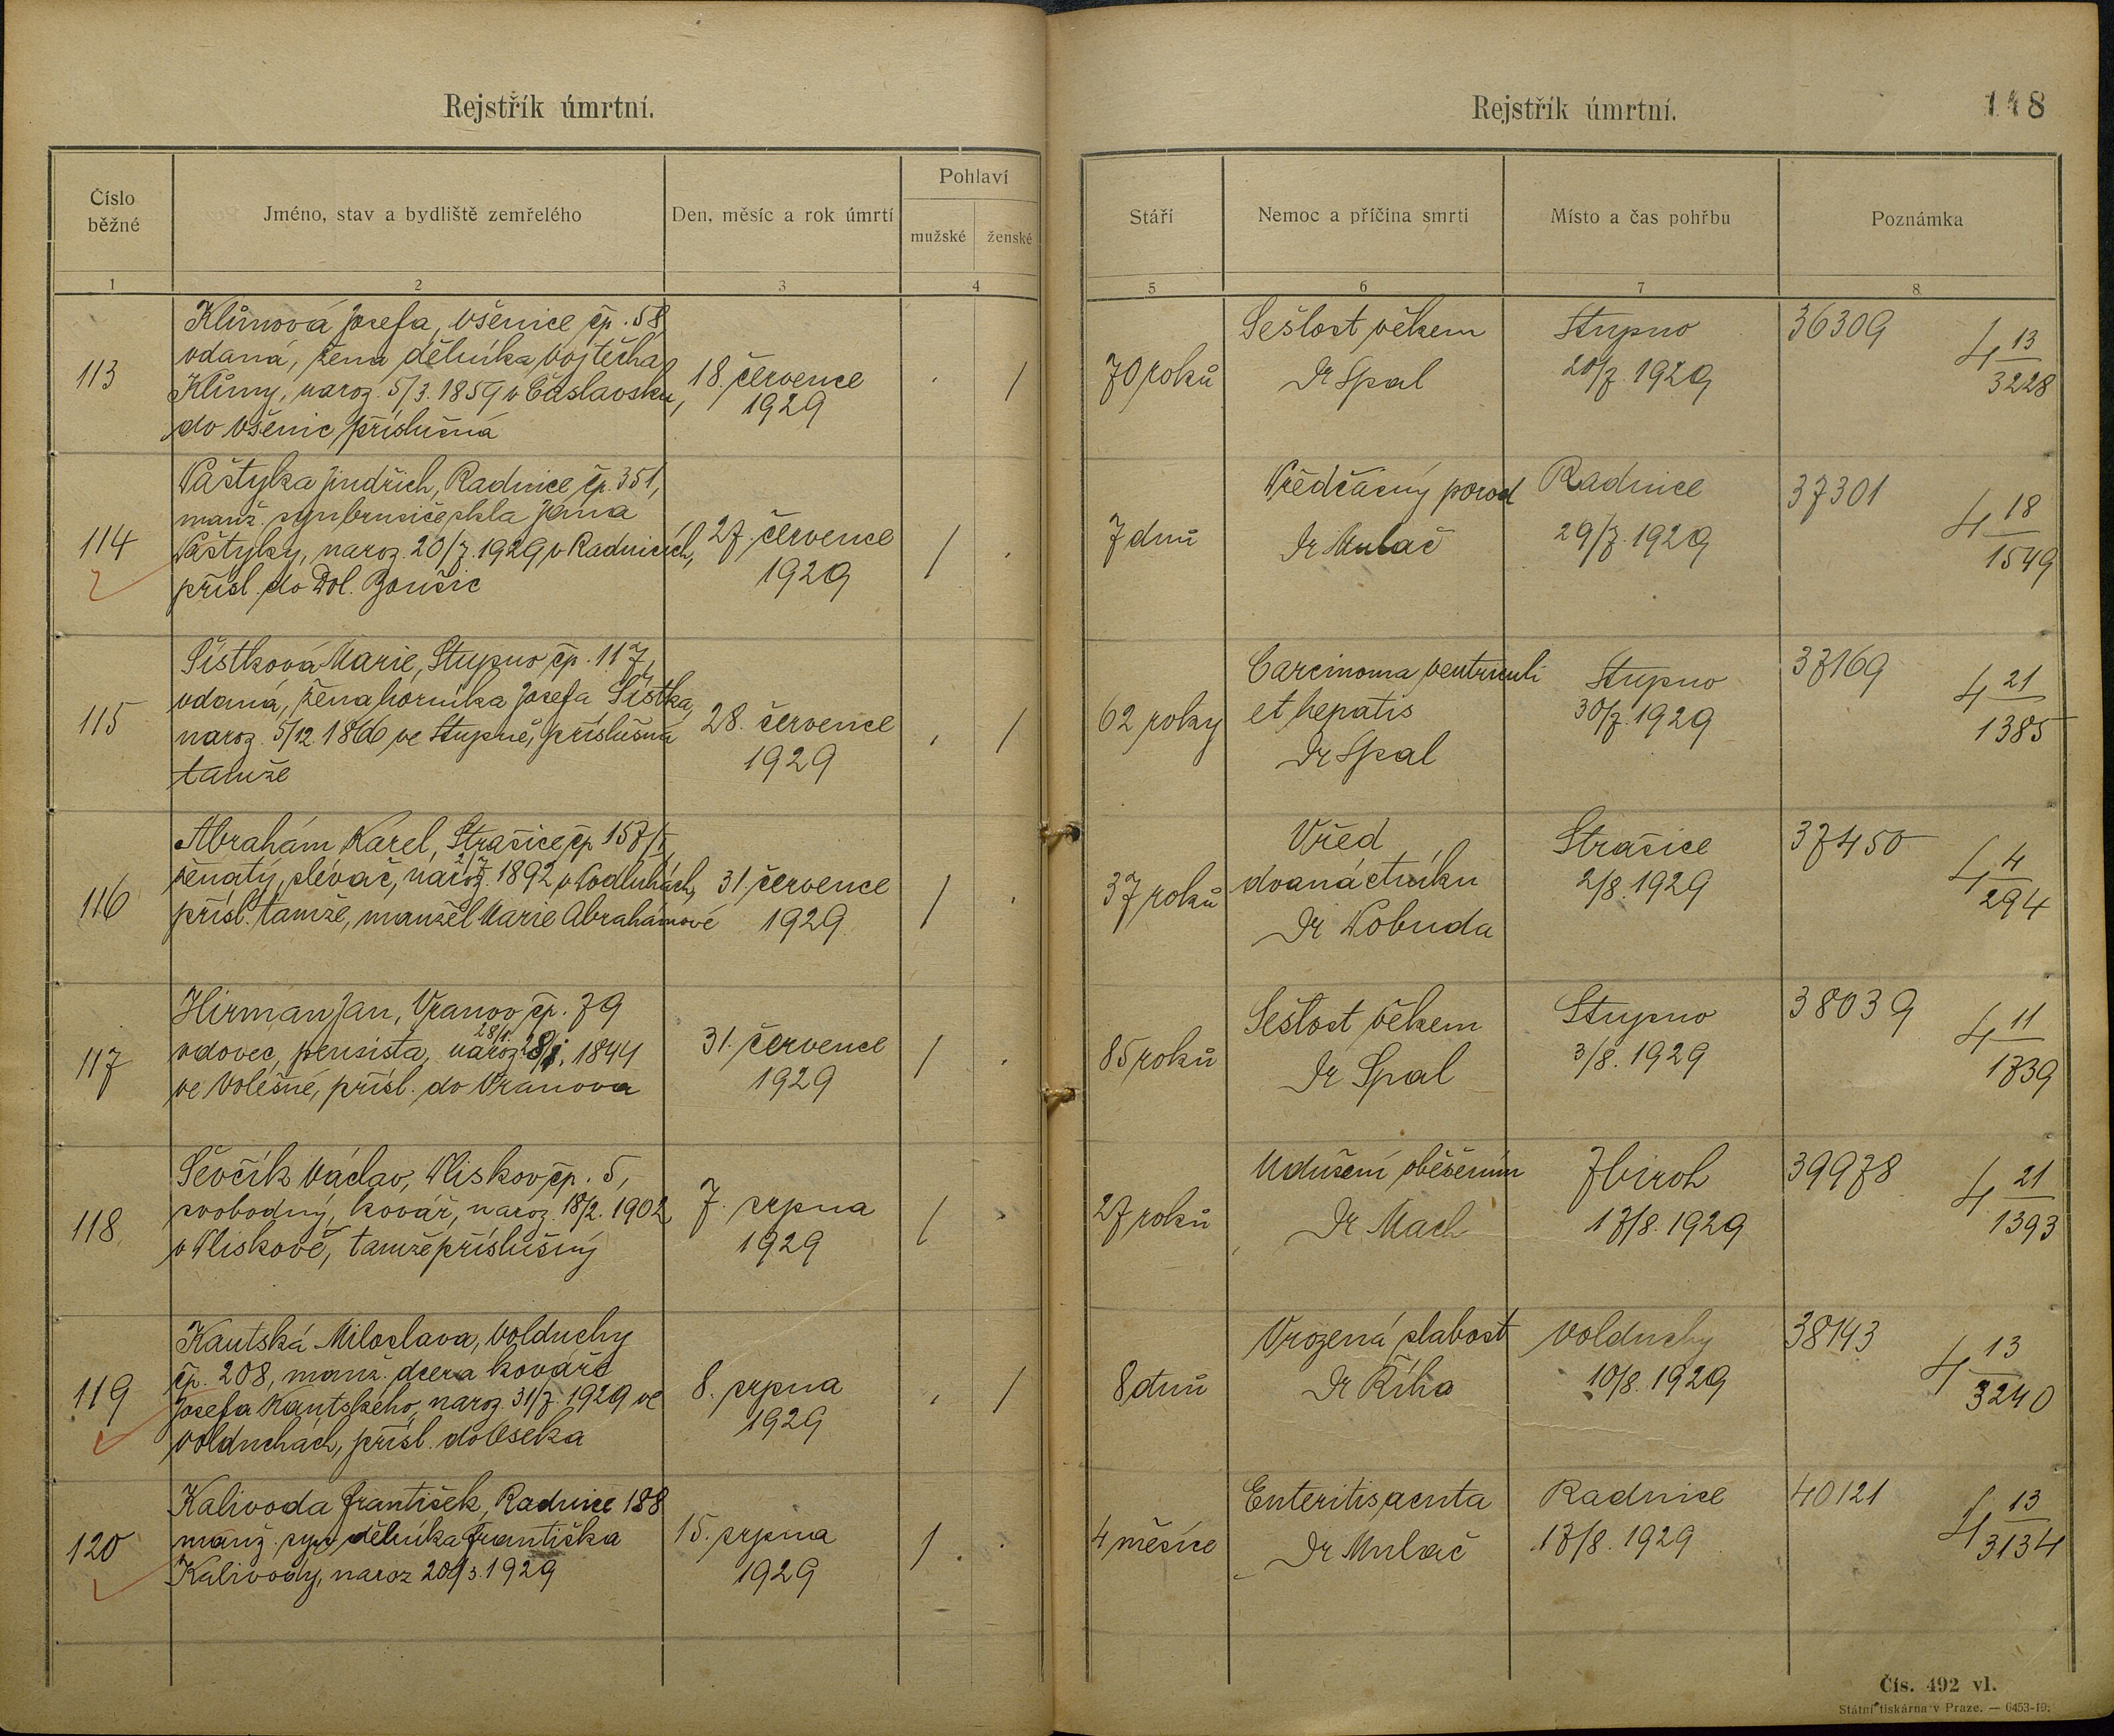 Rejstřík úmrtní.
Číslo běžné
Jméno, stav a bydliště zemřelého
Den, měsíc a rok úmrtí
Pohlaví
mužské
ženské
1
2
3
4
113
Klímová Josefa, Všenice čp. 58
vdaná, žena dělníka Vojtěcha
Klímy, naroz. 5/3. 1859 v Čáslavsku,
do Všenic příslušná
18. července
1929
/
114
Vaštyka Jindřich, Radnice čp. 351,
manž. syn brusiče skla Jana
Vaštyky, naroz. 20/7. 1929 v Radnicích,
přísl. do Dol. Boušic
27. července
1929
/
115
Šístková Marie, Stupno čp. 117,
vdaná, žena horníka Josefa Šístka,
naroz. 5/12. 1866 ve Stupně, příslušná
tamže
28. července
1929
/
116
Abrahám Karel, Strašice čp 157/I,
ženatý, slévač, naroz. 2/7. 1892 v Podluhách,
přísl. tamže, manžel Marie Abrahámové
31. července
1929
/
117
Hirman Jan, Vranov čp. 79
28/1
vdovec, pensista, naroz. 28/1. 1844
ve Volešné, přísl. do Vranova
31. července
1929
/
118
Ševčík Václav, Plískov čp. 5,
svobodný, kovář, naroz. 18/2. 1902
v Plískově, tamže příslušný
7. srpna
1929
/
119
Kautská Miloslava, Volduchy
čp. 208, manž. dcera kováře
Josefa Kautského, naroz. 31/7. 1929 ve
Volduchách, přísl. do Oseka
8. srpna
1929
/
120
Kalivoda František, Radnice 188
manž. syn dělníka Františka
Kalivody, naroz 20/3. 1929
15. srpna
1929
/
Rejstřík úmrtní.
148
Stáří
Nemoc a příčina smrti
Místo a čas pohřbu
Poznámka
5
6
7
8
70 roků
Sešlost věkem
Dr Spal
Stupno
20/7. 1929
36309
4 13/3228
7 dnů
Předčasný porod
Dr Mulač
Radnice
29/7. 1929
37301
4 18/1549
62 roky
Carcinoma ventriculi
et hepatis
Dr Spal
Stupno
30/7. 1929
37169
4 21/1385
37 roků
Vřed
dvanáctníku
Dr Pobuda
Strašice
2/8. 1929
37450
4 4/294
85 roků
Sešlost věkem
Dr Spal
Stupno
3/8. 1929
38039
4 11/1739
27 roků
Udušení oběšením
Dr Mach
Zbiroh
17/8. 1929
39978
4 21/1393
8 dnů
Vrozená slabost
Dr Říha
Volduchy
10/8. 1929
38143
4 13/3240
4 měsíce
Enteritis acuta
Dr Mulač
Radnice
17/8. 1929
40121
4 13/3134
Čís. 492 vl.
Státní tiskárna v Praze. — 6453-19.